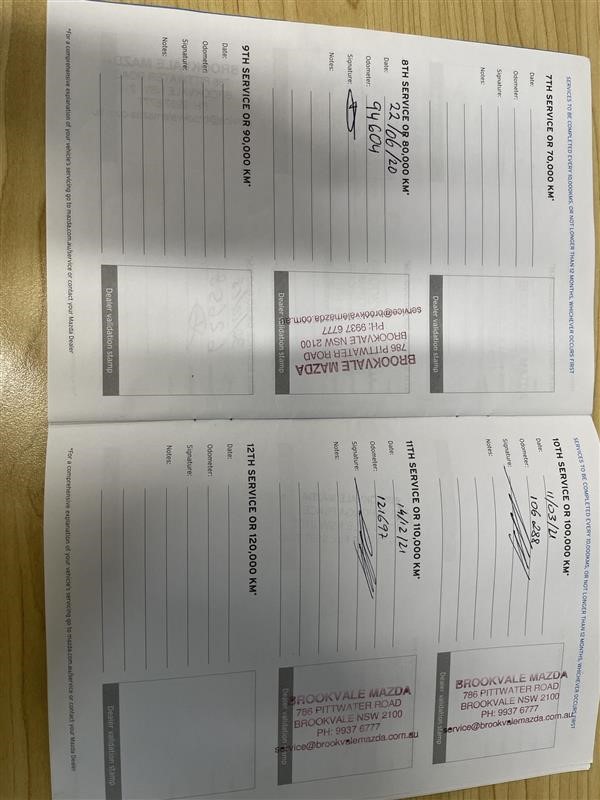 SERVICES TO BE COMPLETED EVERY 10,000KMS, OR NOT LONGER THAN 12 MONTHS, WHICHEVER OCCURS FIRST
7TH SERVICE OR 70,000 KM*
Date:
Odometer:
Signature:
Notes:
Dealer validation stamp
8TH SERVICE OR 80,000 KM*
Date: 22/06/20
Odometer: 94604
Signature:
Notes:
BROOKVALE MAZDA
786 PITTWATER ROAD
BROOKVALE NSW 2100
PH: 9937 6777
service@brookvalemazda.com.au
Dealer validation stamp
9TH SERVICE OR 90,000 KM*
Date:
Odometer:
Signature:
Notes:
Dealer validation stamp
*For a comprehensive explanation of your vehicle's servicing go to mazda.com.au/service or contact your Mazda Dealer
SERVICES TO BE COMPLETED EVERY 10,000KMS, OR NOT LONGER THAN 12 MONTHS, WHICHEVER OCCURS FIRST
10TH SERVICE OR 100,000 KM*
Date: 11/03/21
Odometer: 106 288
Signature:
Notes:
BROOKVALE MAZDA
786 PITTWATER ROAD
BROOKVALE NSW 2100
PH: 9937 6777
service@brookvalemazda.com.au
Dealer validation stamp
11TH SERVICE OR 110,000 KM*
Date: 14/12/21
Odometer: 121697
Signature:
Notes:
BROOKVALE MAZDA
786 PITTWATER ROAD
BROOKVALE NSW 2100
PH: 9937 6777
service@brookvalemazda.com.au
Dealer validation stamp
12TH SERVICE OR 120,000 KM*
Date:
Odometer:
Signature:
Notes:
Dealer validation stamp
*For a comprehensive explanation of your vehicle's servicing go to mazda.com.au/service or contact your Mazda Dealer